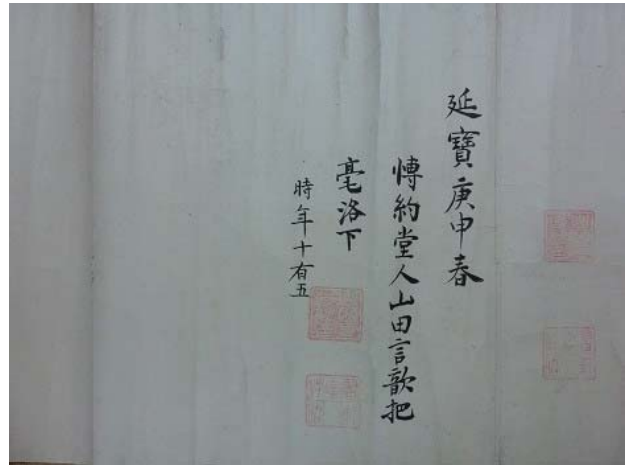 延寶庚申春
愽約堂人山田言歆把
毫洛下
時年十有五